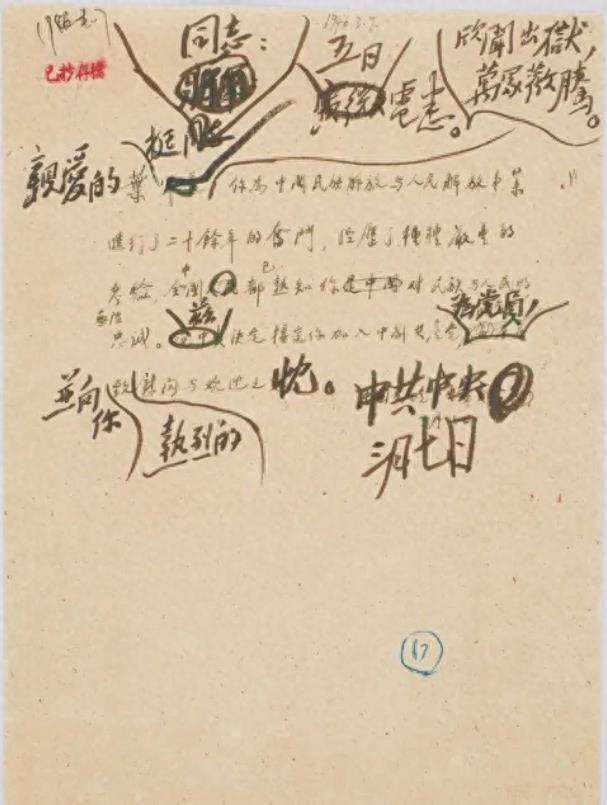 (1946.3.7)
1946.3.7.
已抄存檔
同志:
五日
電悉。
欣聞出獄,
萬眾歡騰。
挺同志
親愛的葉 你為中國民族解放与人民解放事業
進行了二十餘年的奮鬥,經歷了種種嚴重的
考驗,全中國都已熟知你對民族与人民的無限
忠誠。茲決定接受你加入中國共產黨為黨員,
並向你致熱烈的慰問与歡迎之忱。 中共中央
三月七日
17